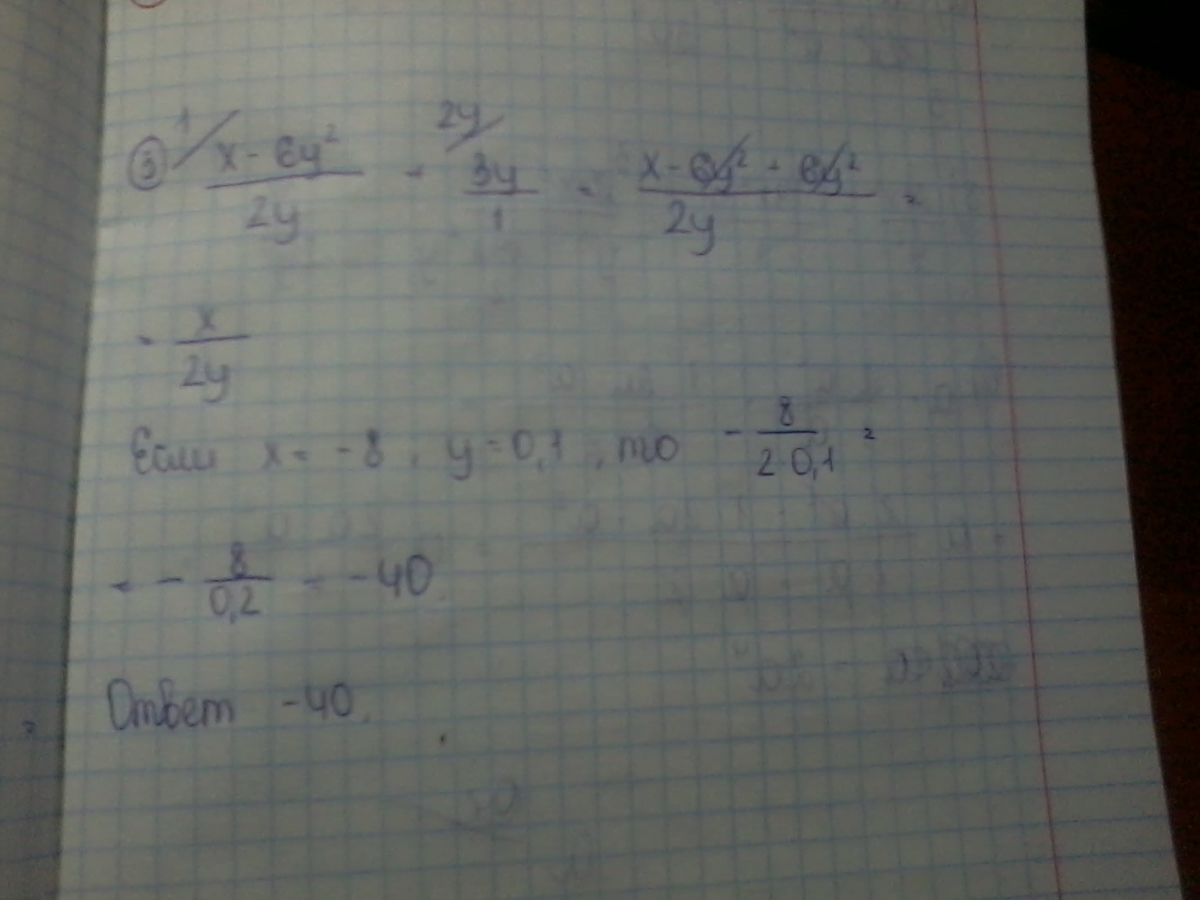 ③ 1/ x - 6y² / 2y - 2y/ 3y / 1 = x - 6y² - 6y² / 2y =
= x / 2y
Если x = -8, y = 0,1, то - 8 / 2·0,1 =
= - 8 / 0,2 = -40
Ответ -40.